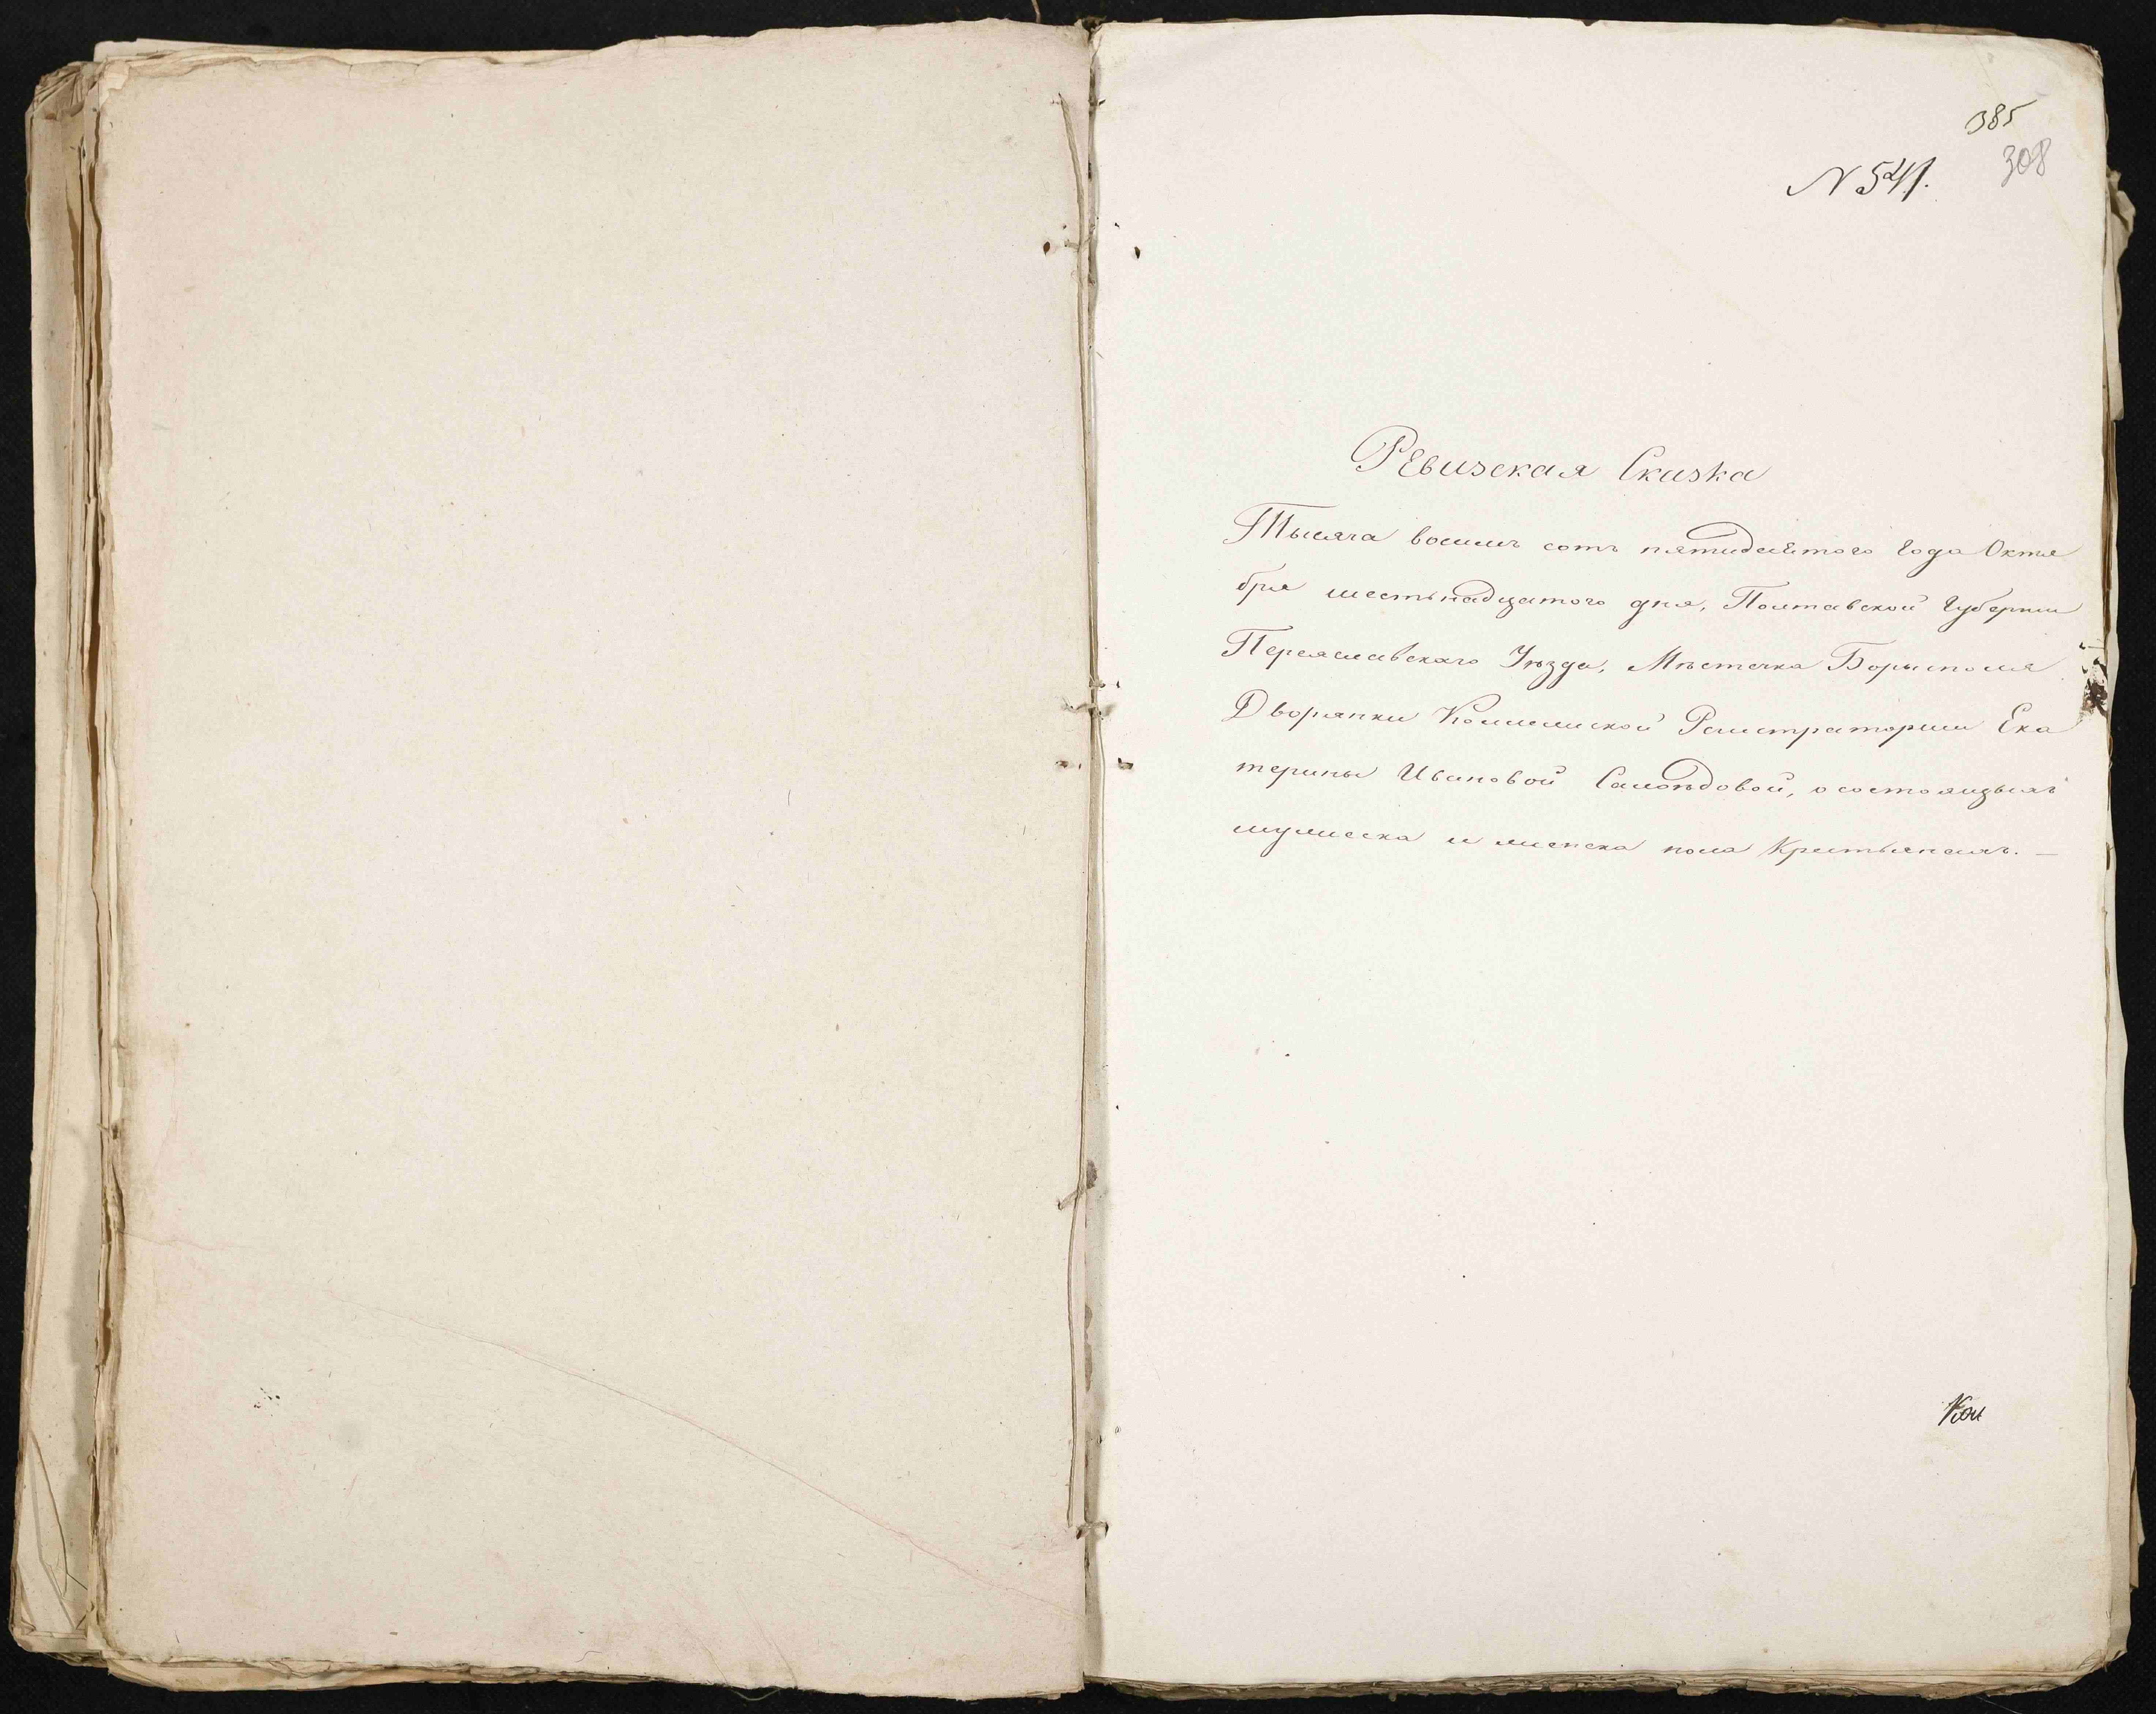 385
308
N 541.
Ревизская Сказка
Тысяча восемь сотъ пятидесятого года Октя
бря шестьнадцатого дня, Полтавской Губернии
Переяславскаго Уѣзда, Мѣстечка Борисполя
Дворянки Коллежской Регистраторши Ека
терины Ивановой, о состоящихъ
мужеска и женска пола Крестьянахъ. —